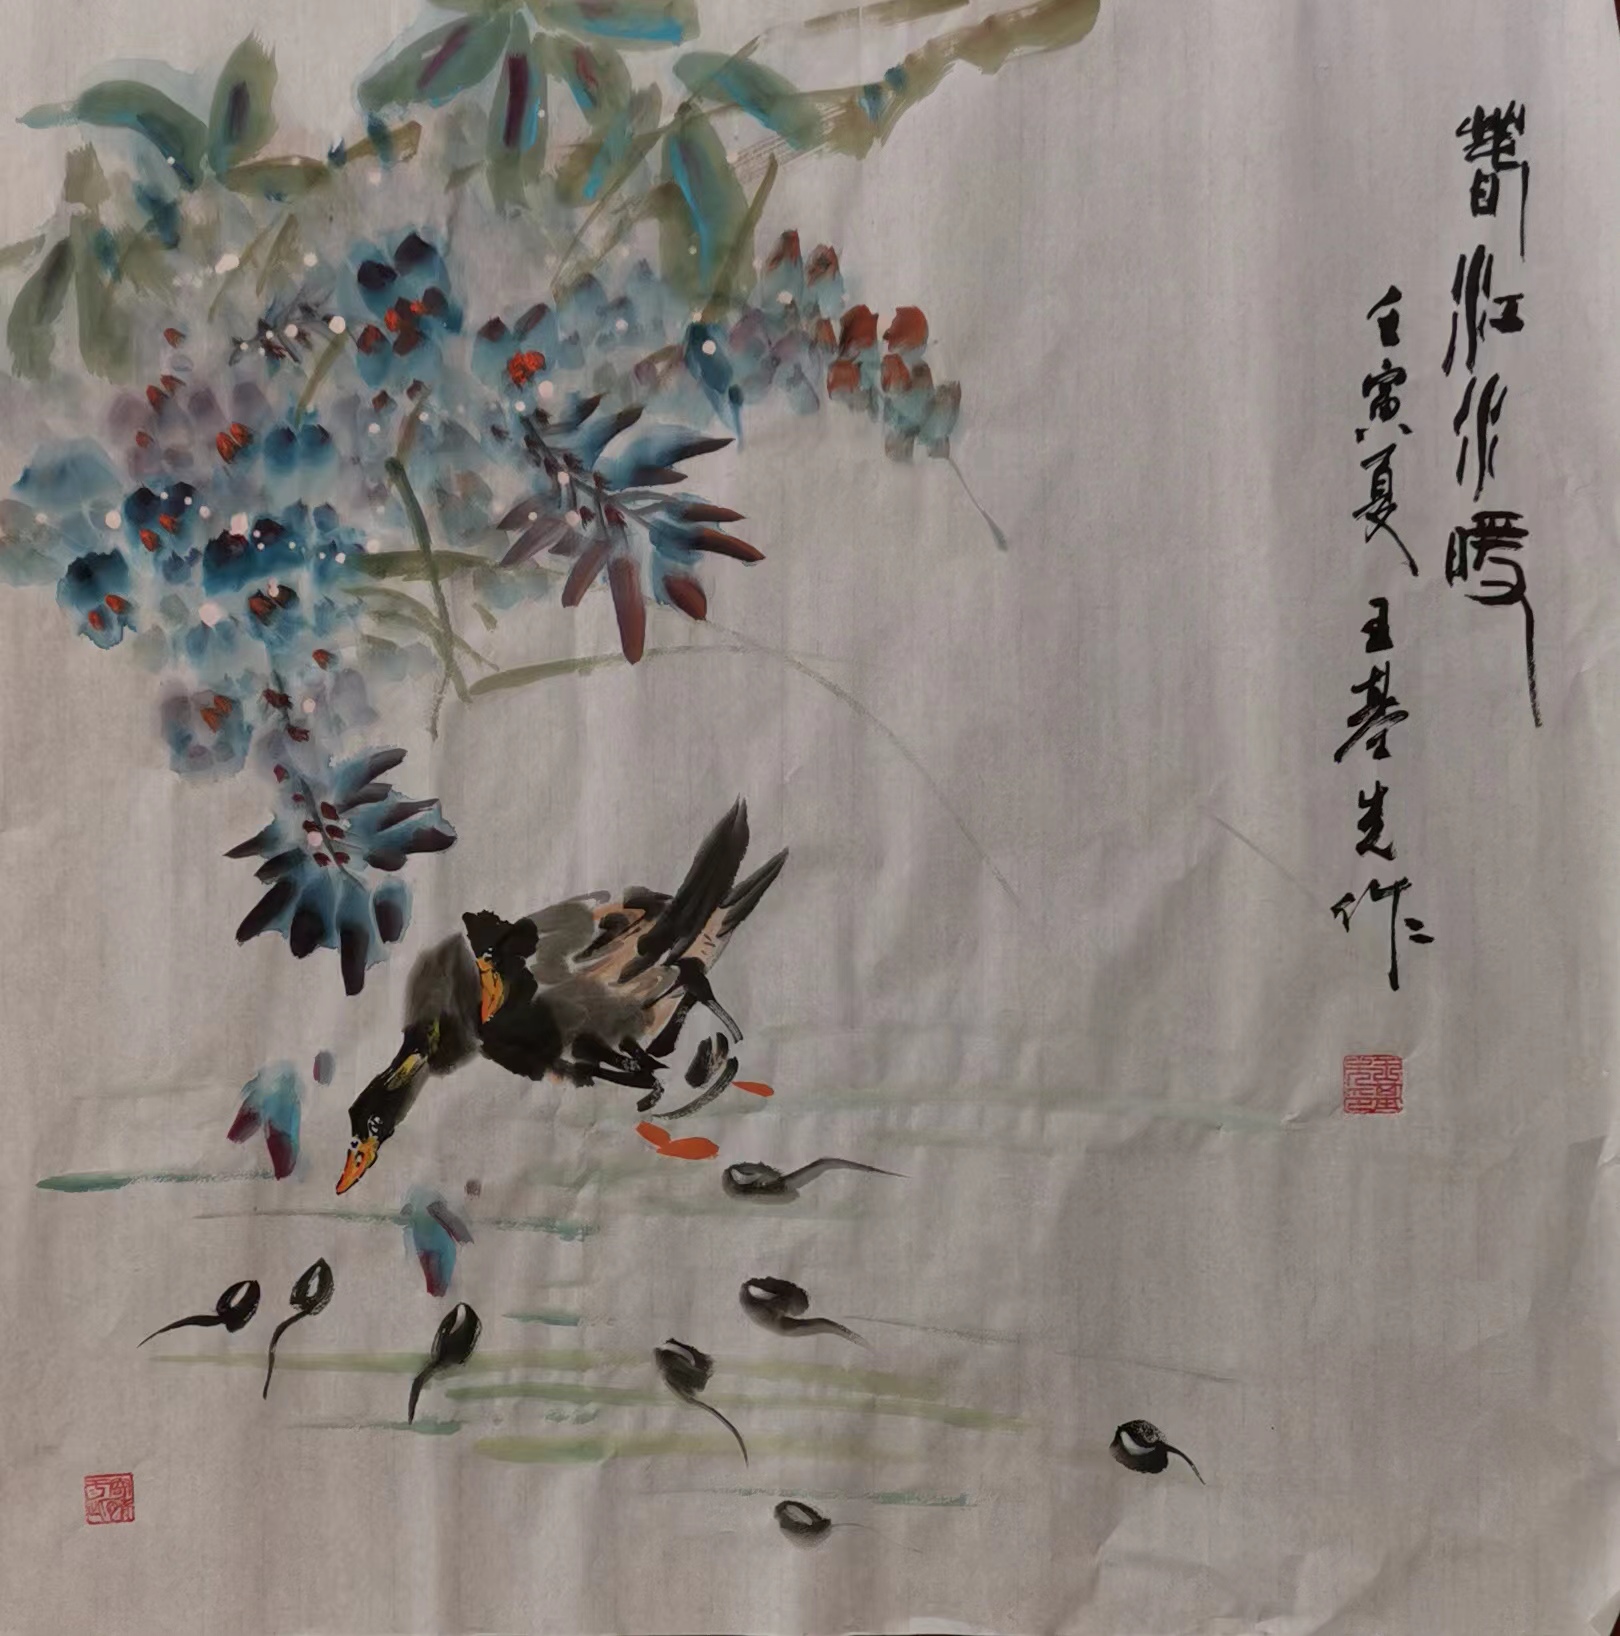 春江水暖
壬寅夏王基先作